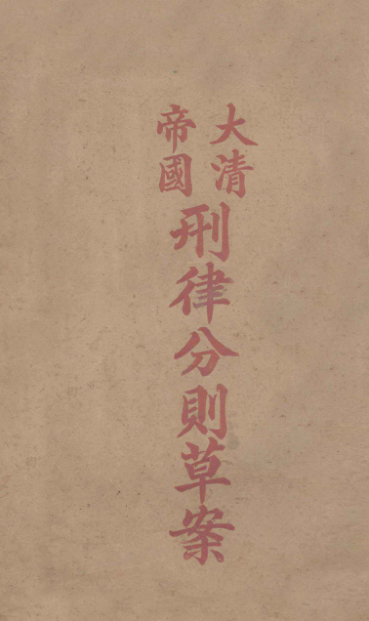 大清
帝國
刑律分則草案